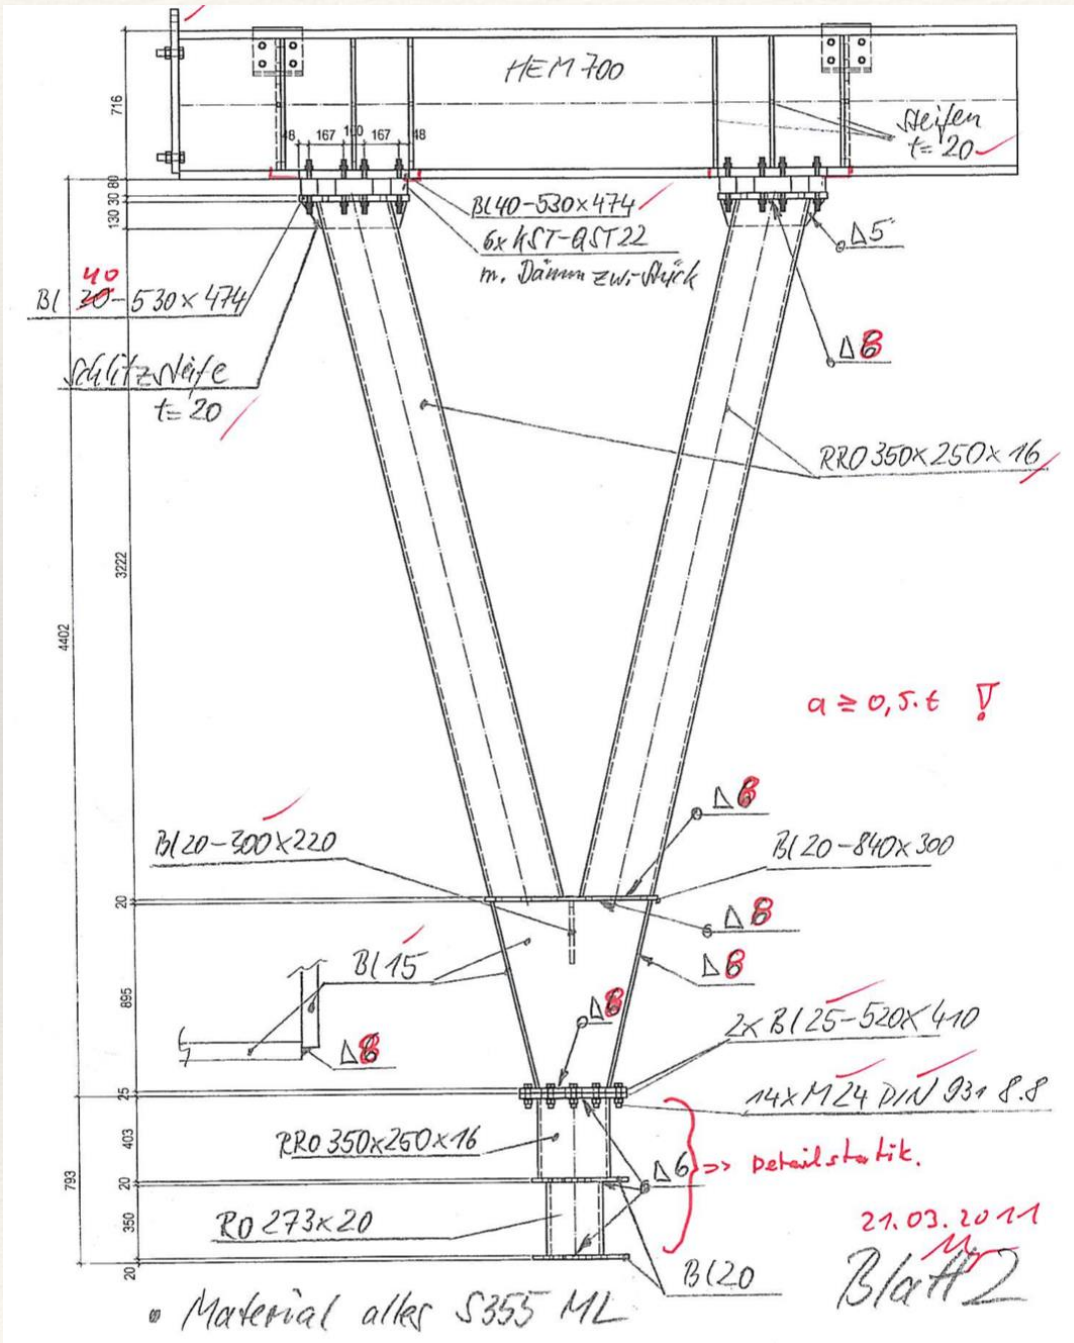 HEM 700
716
48 167 100 167 48
Steifen
t= 20
80
30
130
Bl 40-530x474
6x KST-QST 22
m. Dämm zwi-Stück
Δ5
40
Bl 30-530x474
Δ8
Schlitzsteife
t= 20
RRO 350x250x16
3222
4402
a ≥ 0,5.t !
Δ8
Bl 20-300x220
Bl 20-840x300
20
Δ8
Bl 15
Δ8
895
Δ8
2x Bl 25-520x410
Δ8
25
14xM24 DIN 931 8.8
403
RRO 350x250x16
Δ6 => Detailstatik.
793
20
350
RO 273x20
21.03.2011
Bl 20
20
Blatt 2
Material alles S355 ML